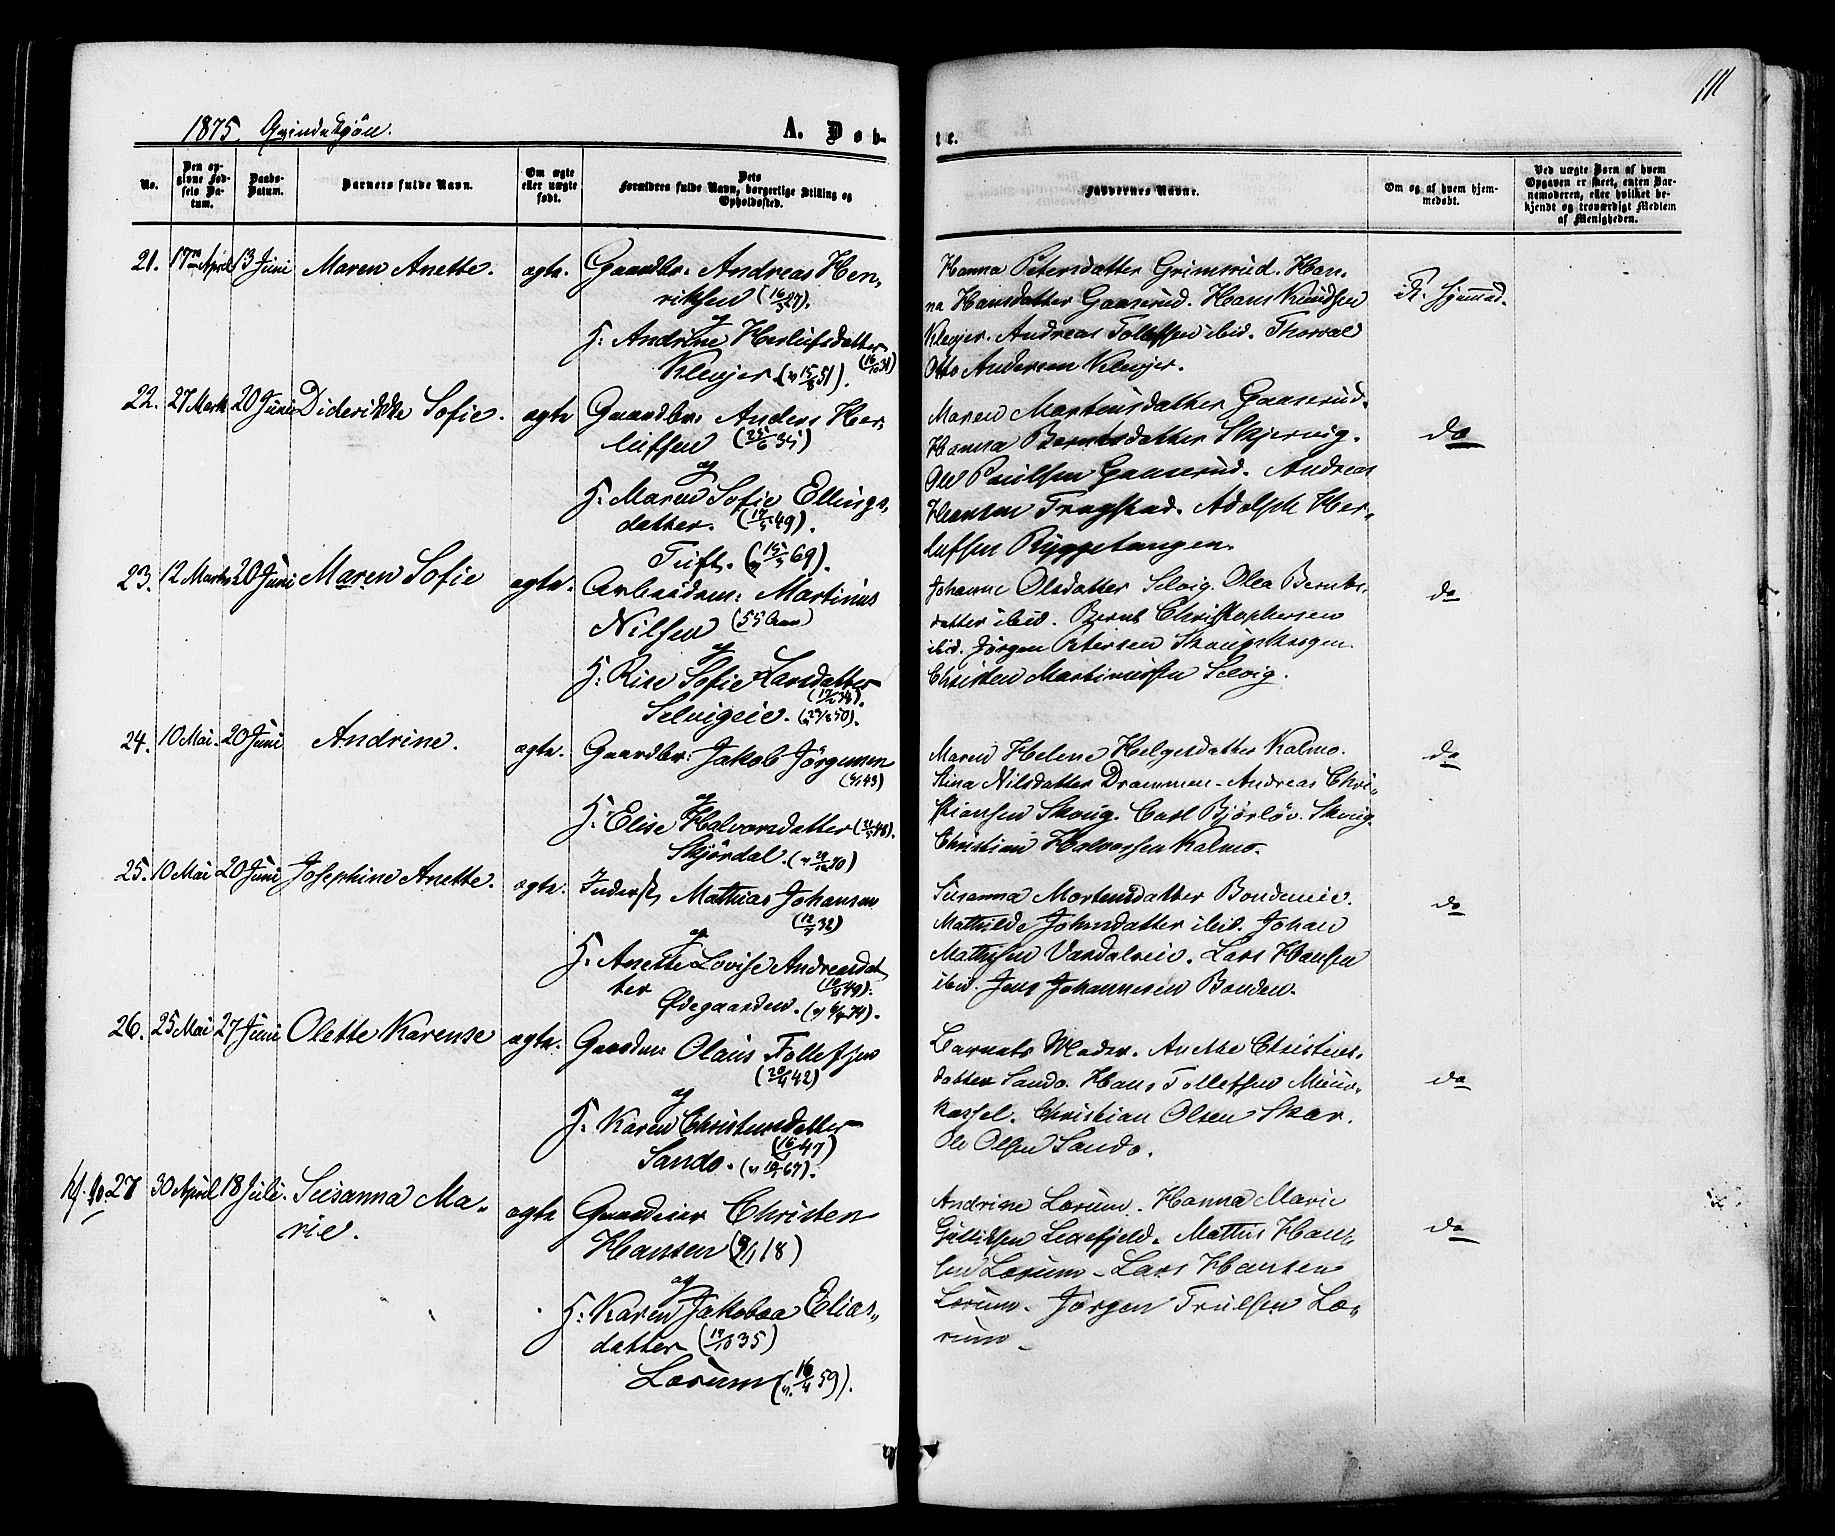 111
1875. Qvindekjön.
A. Døb-
te.
No.
Den opgivne Fødsels Datum.
Daabs-Datum.
Barnets fulde Navn.
Om ægte eller uægte født.
Dets Forældres fulde Navn, borgerlige Stilling og Opholdssted.
Faddernes Navne.
Om og af hvem hjemmedøbt.
Ved uægte Børn af hvem Opgaven er skeet, enten Barnemoderen, eller hvilket bekjendt og troværdigt Medlem af Menigheden.
21. 17 April 13 Juni Maren Anette. ægte. Gaardbr: Andreas Hen-
riksen
og
H: Andrine Herlufsdatter
Klevjer. (v 15/8 51).
Hanna Petersdatter Grimsrud. Han-
na Hansdatter Gaaserud. Hans Knudsen
Klevjer. Andreas Tollefsen ibid. Thorval
Otto Andersen Klevjer.
ik. hjemmed.
22. 27 Marts 20 Juni Diderikke Sofie. ægte Gaardbr: Anders Her-
lufsen
og
H: Maren Sofie Ellings-
datter. 49).
Tuft. 69).
Maren Martinsdatter Gaaserud.
Hanna Berntsdatter Skjervig.
Ole Paulsen Gaaserud. Andreas
Hansen Trogstad. Adolph Her-
lufsen Ryggetangen.
do
23. 12 Marts 20 Juni Maren Sofie ægte. Arbeidsm: Martinus
Nilsen (55 Aar)
og
H: Rise Sofie Larsdatter
Selvigeie.
Johanne Olsdatter Selvig. Olea Bernts-
datter ibid. Bernt Christophersen
ibid. Jörgen Petersen Skougskrogen.
Christen Martinussen Selvig.
do
24. 10 Mai. 20 Juni Andrine. ægte. Gaardbr: Jakob Jörgensen
og
H: Elise Halvorsdatter
Skjördal.
Maren Helene Helgesdatter Kalmo.
Stina Nilsdatter Drammen. Andreas Chri-
stiansen Skoug. Carl Björlöv. Skoug.
Christian Halvorsen Kalmo.
do
25. 10 Mai 20 Juni Josephine Anette. ægte. Inderst, Mathias Johansen
og
H: Anette Lovise Andreasdat
ter
Ødegaarden.
Susanna Mortensdatter Bondeneie.
Mathilde Johnsdatter ibid. Johan
Mathisen Vardalseie. Lars Hansen
ibid. Jens Johannesen Bonden.
do
26. 25 Mai 27 Juni Olette Karense ægte. Olaus Tollefsen
og
H: Karen Christensdatter
Sando.
Barnets Moder. Anette Christens-
datter Sando. Hans Tollefsen
Christian Olsen Skar.
Ole Olsen Sando.
do
27 30 April 18 Juli. Susanna Ma-
rie.
ægte Gaardeier Christen
Hansen
og
H: Karen Jakobea Elias-
datter (17/10 35)
Lærum (v. 16/4 59).
Andrine Lærum. Hanna Marie
Gulliksen Mathis Han-
sen Lærum. Lars Hansen
Lærum. Jörgen Trulsen Læ-
rum.
do